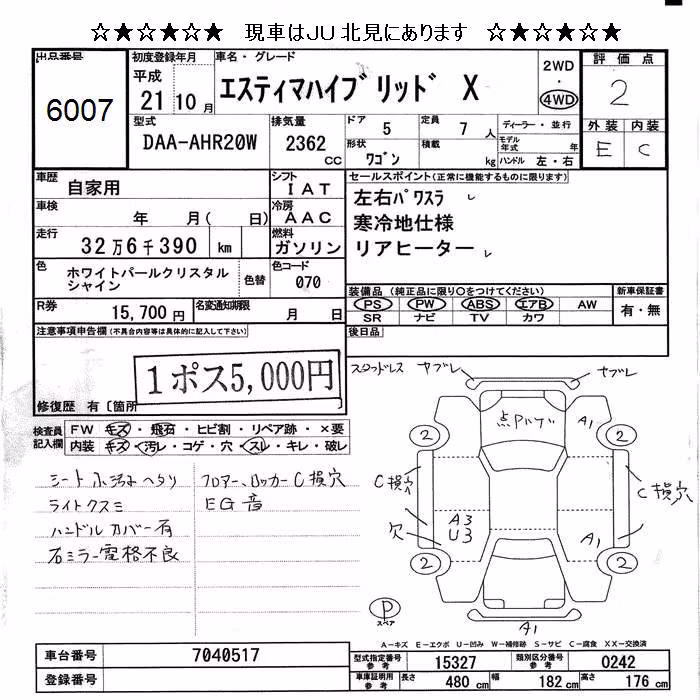 ☆★☆★☆★ 現車はJU北見にあります ☆★☆★☆★
出品番号 初度登録年月 車名・グレード 2WD・4WD 評価点
6007 平成 21 10月 エスティマハイブリッド X 2
型式 排気量 ドア 定員 ディーラー・並行 外装 内装
DAA-AHR20W 2362 CC 5 7 人 モデル年式 年 E C
形状 ワゴン 積載 kg ハンドル 左・右
車歴 自家用 シフト IAT セールスポイント(正常に機能するものに限ります)
車検 年 月( 日) 冷房 AAC 左右パワスラ
寒冷地仕様
走行 32万6千390 km 燃料 ガソリン リアヒーター
色 ホワイトパールクリスタルシャイン 色替 色コード 070
装備品(純正品に限り○をつけてください) 新車保証書
PS PW ABS エアB AW 有・無
SR ナビ TV カワ
R券 15,700円 名変通知期限 月 日
注意事項申告欄(不具合内容等は具体的に記入して下さい) 後日品
1ポス5,000円
修復歴 有〔箇所
検査員記入欄 FW キズ・飛石・ヒビ割・リペア跡・×要
内装 キズ・汚レ・コゲ・穴・スレ・キレ・破レ
シート小汚れヘタリ フロアー、ロッカーC損穴
ライトクスミ EG音
ハンドルカバー有
右ミラー電格不良
スタッドレス ヤブレ ヤブレ
点サバケ A1
2 2
C損穴 C損穴
欠 A3 U3 A1
2 2
P スペア A1
A-キズ E-エクボ U-凹み W-補修跡 S-サビ C-腐食 XX-交換済
車台番号 7040517 型式指定番号 参考 15327 類別区分番号 参考 0242
登録番号 車庫証明用 参考 長さ 480cm 幅 182cm 高さ 176cm